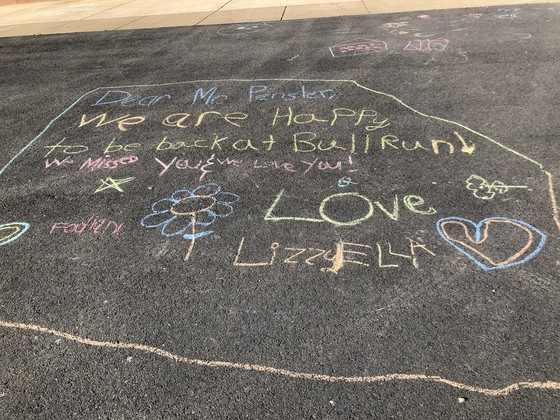 Dear Mr Penster,
We are Happy
to be back at Bull Run!
We Missed You! We Love You!
Love
LizzyELLA